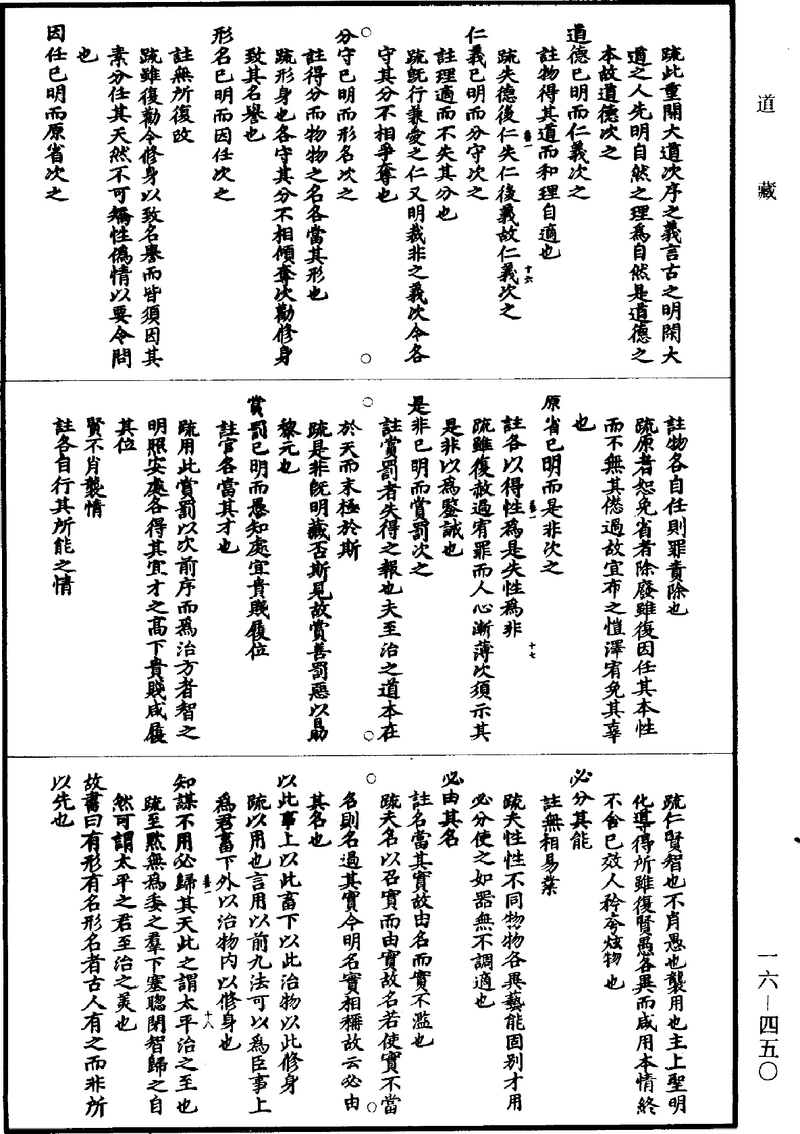 道藏
疏此重開大道次序之義言古之明開大
道之人先明自然之理為自然是道德之
本故道德次之
道德已明而仁義次之
註物得其道而和理自適也
疏失德後仁失仁後義故仁義次之
十六
仁義已明而分守次之
註理適而不失其分也
疏既行兼愛之仁又明裁非之義次令各
守其分不相爭奪也
分守已明而形名次之
註得分而物物之名各當其形也
疏形身也各守其分不相傾奪次勸修身
致其名譽也
形名已明而因任次之
註無所復改
疏雖復勸令修身以致名譽而皆須因其
素分任其天然不可矯性偽情以要令問
也
因任已明而原省次之
註物各自任則罪責除也
疏原者恕免省者除廢雖復因任其本性
而不無其僽過故宜布之愷澤宥免其辜
也
原省已明而是非次之
註各以得性為是失性為非
十七
疏雖復赦過宥罪而人心漸薄次須示其
是非以為鑒誡也
是非已明而賞罰次之
註賞罰者失得之報也夫至治之道本在
於天而末極於斯
疏是非既明臧否斯見故賞善罰惡以勗
黎元也
賞罰已明而愚知處宜貴賤履位
註官各當其才也
疏用此賞罰以次前序而為治方者智之
明照安處各得其宜才之高下貴賤咸履
其位
賢不肖襲情
註各自行其所能之情
疏仁賢智也不肖愚也襲用也主上聖明
化導得所雖復賢愚各異而咸用本情終
不舍已效人矜夸炫物也
必分其能
註無相易業
疏夫性性不同物物各異藝能固別才用
必分使之如器無不調適也
必由其名
註名當其實故由名而實不濫也
疏夫名以召實而由實故名若使實不當
名則名過其實今明名實相稱故云必由
其名也
以此事上以此畜下以此治物以此修身
疏以用也言用以前九法可以為臣事上
為君畜下外以治物內以修身也
十八
知謀不用必歸其天此之謂太平治之至也
疏至默無為委之羣下塞聰閉智歸之自
然可謂太平之君至治之美也
故書曰有形有名形名者古人有之而非所
以先也
一六—四五〇